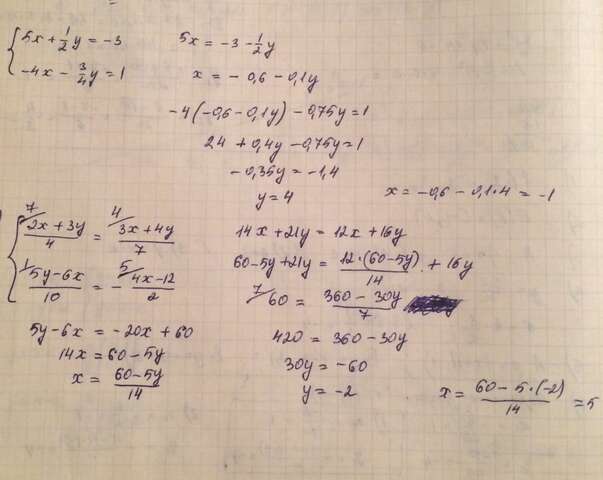 5x + 1/2 y = -3
-4x - 3/4 y = 1
5x = -3 - 1/2 y
x = -0,6 - 0,1y
-4(-0,6 - 0,1y) - 0,75y = 1
2,4 + 0,4y - 0,75y = 1
-0,35y = -1,4
y = 4
x = -0,6 - 0,1·4 = -1
7/ (2x + 3y)/4 = 4/ (3x + 4y)/7
1/ (5y - 6x)/10 = - 5/ (4x - 12)/2
5y - 6x = -20x + 60
14x = 60 - 5y
x = (60 - 5y)/14
14x + 21y = 12x + 16y
60 - 5y + 21y = 12·(60 - 5y)/14 + 16y
7/ 60 = (360 - 30y)/7
420 = 360 - 30y
30y = -60
y = -2
x = (60 - 5·(-2))/14 = 5